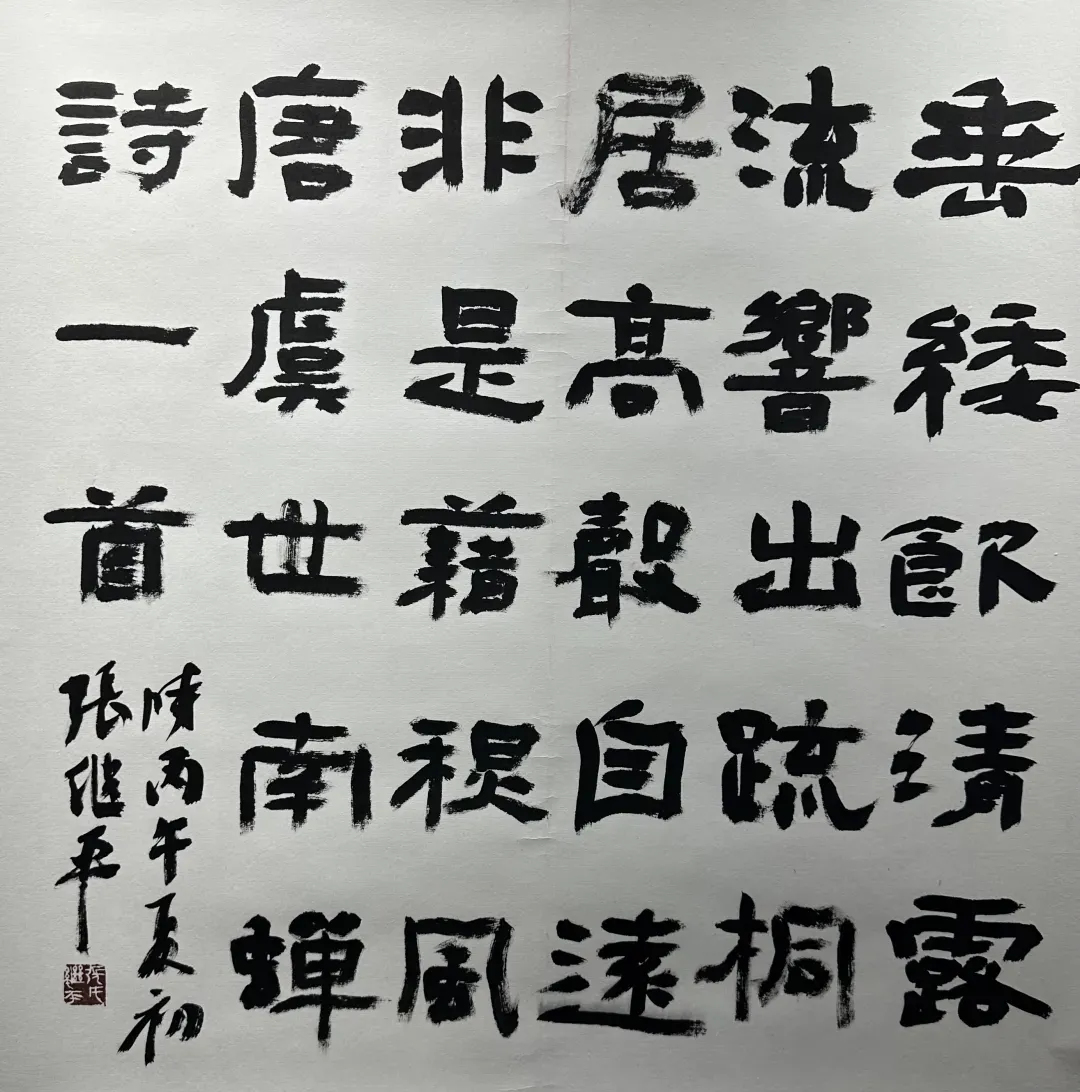 垂緌飲清露
流響出疏桐
居高聲自遠
非是藉秋風
唐虞世南蟬
詩一首
時丙午夏初
張继平